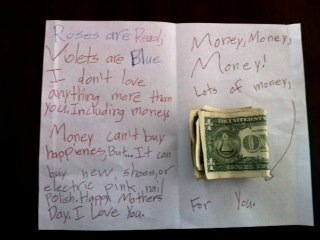 Roses are Read;
Violets are Blue
I don't love
anything more than
you. Including money.
Money can't buy
happieness, But... It can
buy new shoes, or
electric pink nail
polish. Happi Mothers
Day. I Love You.
Money, Money,
Money!
Lots of money,
For You.